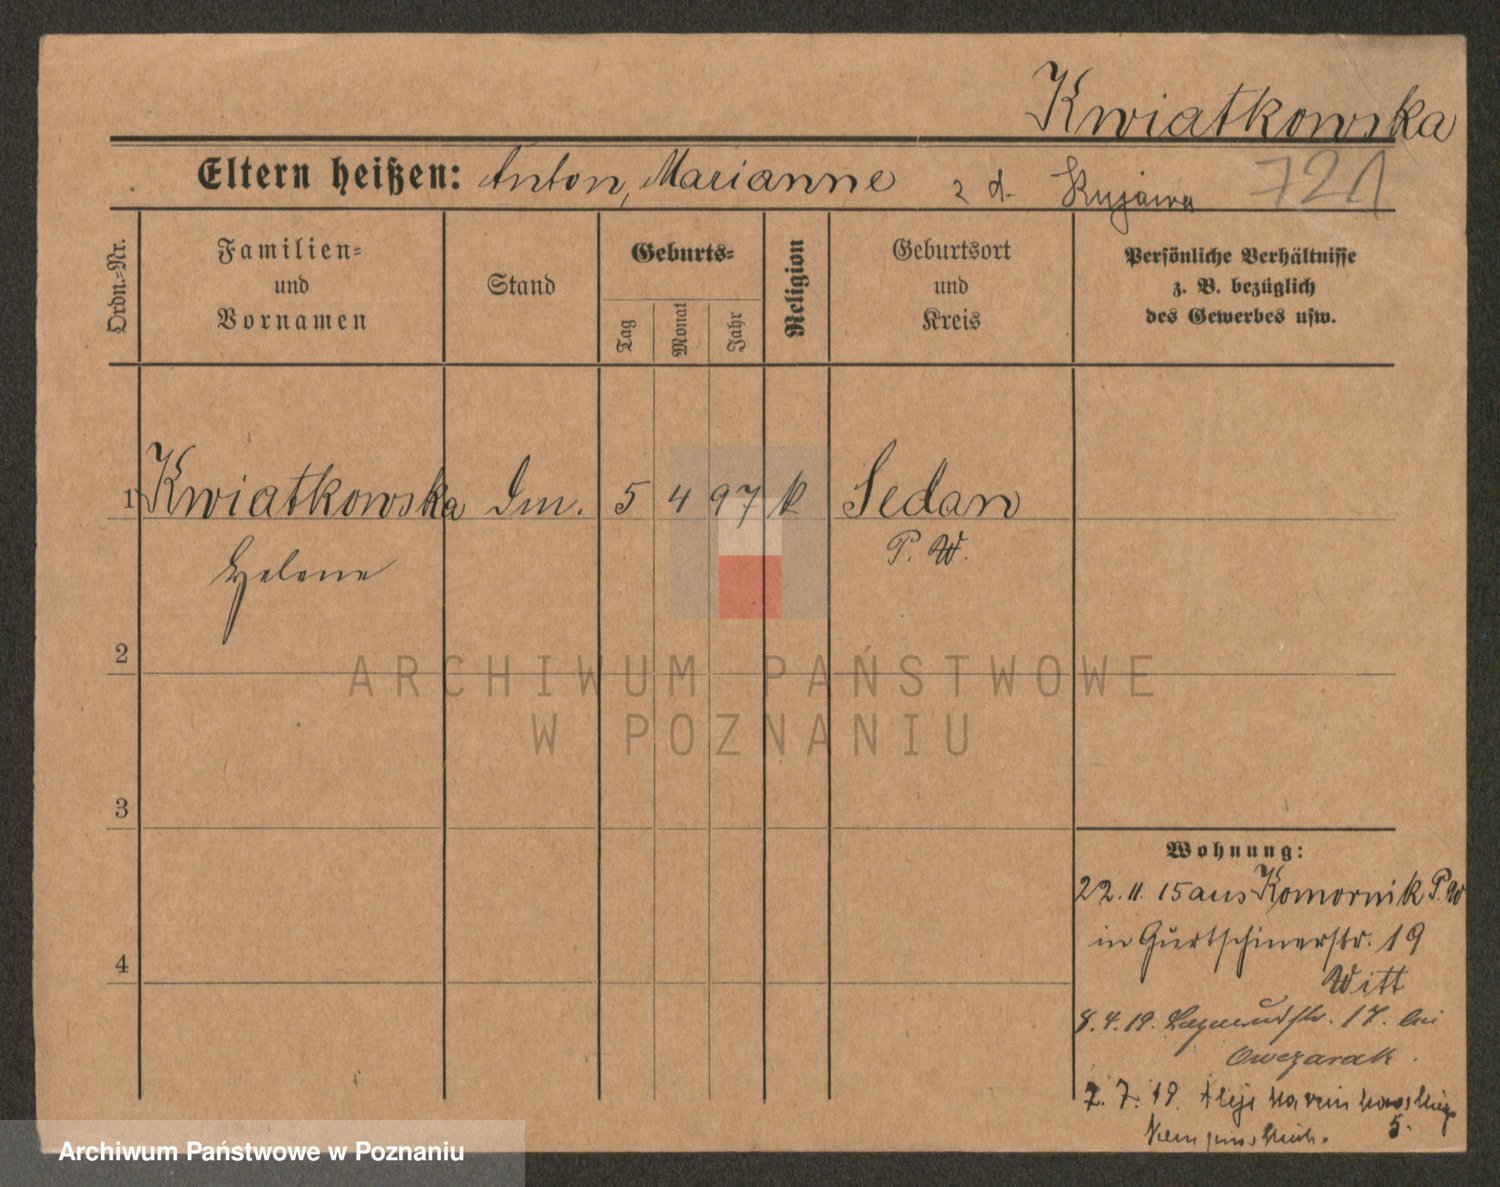 Kwiatkowska
Eltern heißen: Anton, Marianne z d. Kujawa 721
Ordn.=Nr.
Familien=
und
Vornamen
Stand
Geburts=
Tag
Monat
Jahr
Religion
Geburtsort
und
Kreis
Persönliche Verhältnisse
z. B. bezüglich
des Gewerbes usw.
1 Kwiatkowska Dm. 5 4 97 k Sedan
Helene P. W.
2
3
4
ARCHIWUM PAŃSTWOWE
W POZNANIU
Wohnung:
22. 11. 15 aus Komornik P. W
in Gurtschinerstr. 19
Witt
8. 4. 19. 17. bei
Owczarak.
7. 7. 19. Aleje Marcinkowskiego
5.
Archiwum Państwowe w Poznaniu